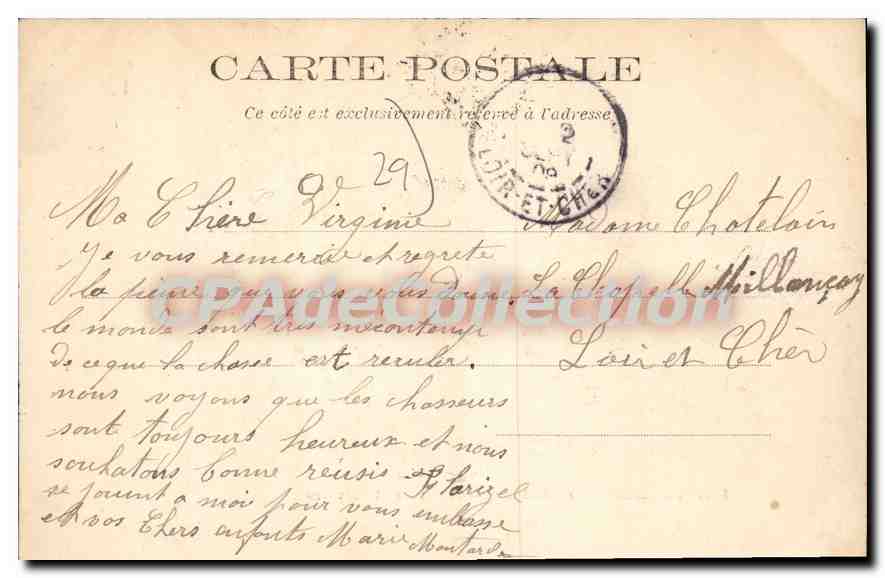 CARTE POSTALE
Ce côté est exclusivement réservé à l'adresse
2
09
LOIR-ET-CHER
29
Ma Chère Virginie
Je vous remercie et regrete
la peine que vous vous donné
le monde sont très mécontent
de ce que la chasse est reculer.
nous voyons que les chasseurs
sont toujours heureux et nous
souhatons bonne réusis Florizel
se joint a moi pour vous embrasse
et vos Chers enfants Marie
Madame Chatelain
La Chapelle Millançay
Loir et Chèr
CPAdeCollection